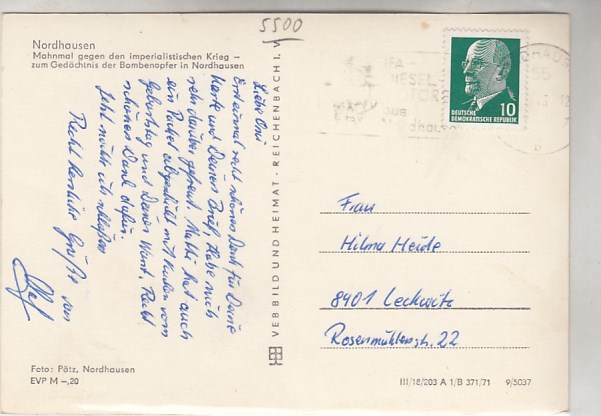 5500
Nordhausen
Mahnmal gegen den imperialistischen Krieg –
zum Gedächtnis der Bombenopfer in Nordhausen
Liebe Omi
Erst einmal recht schönen Dank für Deine
Karte und Deinen Brief. Habe mich
sehr darüber gefreut. Mutti hat auch
ein Paket abgeschickt mit Kuchen vom
Geburtstag und Deinen Wünsch. Recht
schönen Dank dafür.
Jetzt möchte ich schließen
Recht herzliche Grüße von
VEB BILD UND HEIMAT · REICHENBACH I. V.
IFA
DIESEL
MOTOREN
aus
55
b
10
DEUTSCHE
DEMOKRATISCHE REPUBLIK
Frau
Hilma Heide
8401 Leckwitz
Rosenmühlenstr. 22
Foto: Pätz, Nordhausen
EVP M –,20
III/18/203 A 1/B 371/71 9/5037